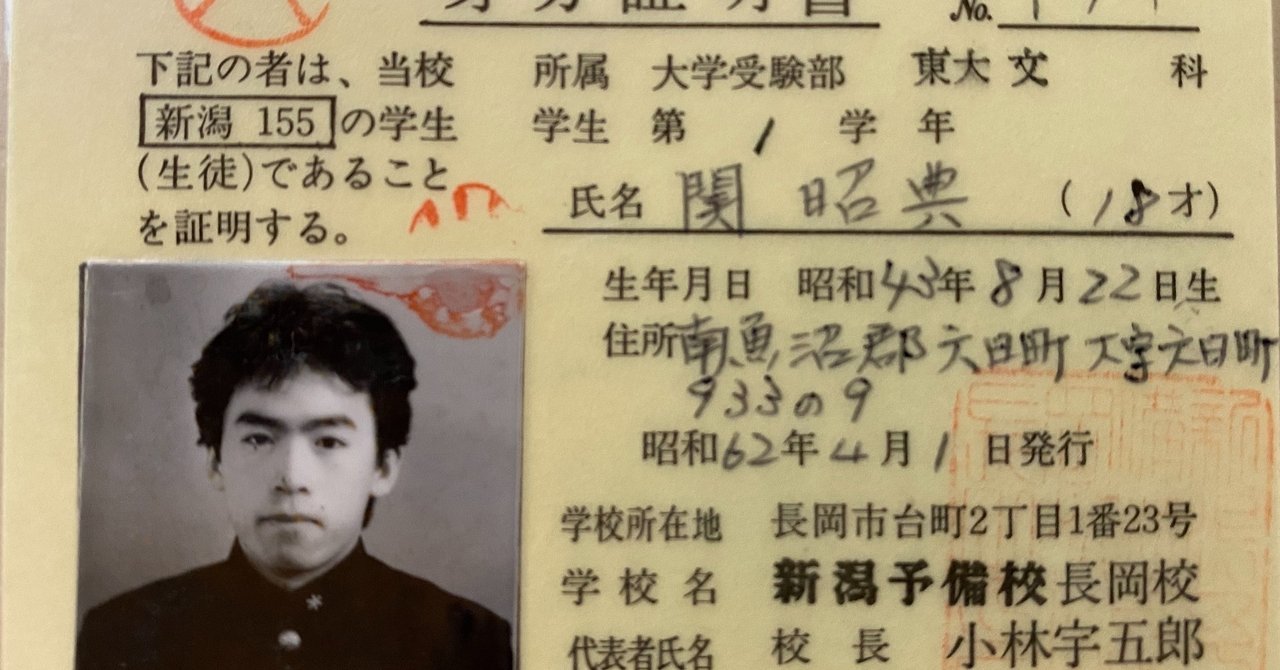 身分証明書 No.
下記の者は、当校
新潟 155 の学生
(生徒)であること
を証明する。
所属 大学受験部 東大文 科
学生 第 1 学年
氏名 関 昭典 (18才)
生年月日 昭和43年8月22日生
住所 南魚沼郡六日町大字六日町
933の9
昭和62年4月1日発行
学校所在地 長岡市台町2丁目1番23号
学校名 新潟予備校長岡校
代表者氏名 校長 小林宇五郎